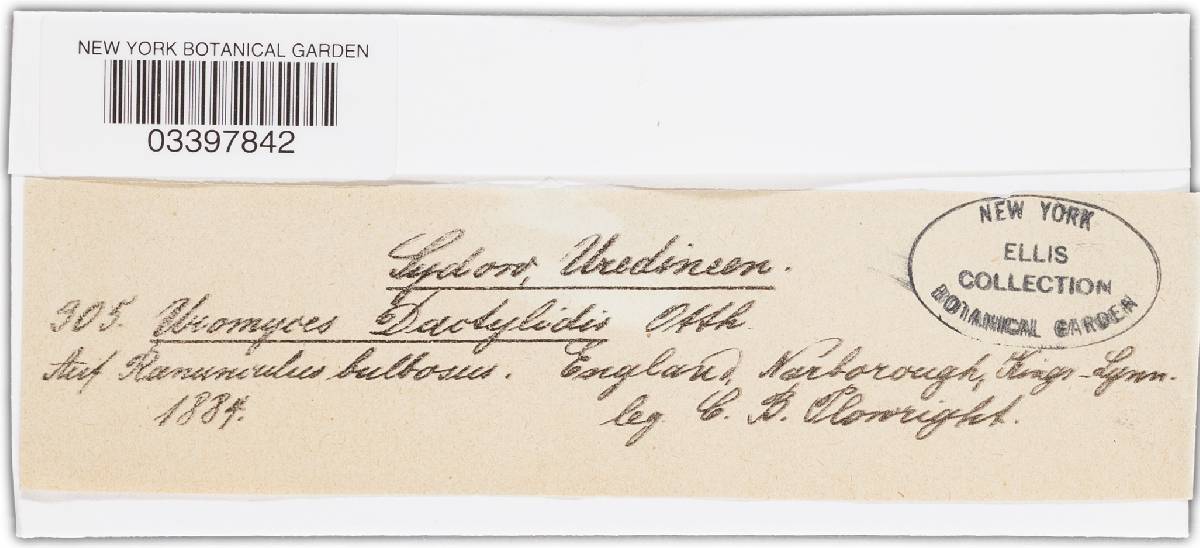 NEW YORK BOTANICAL GARDEN
03397842
Sydow, Uredineen.
NEW YORK
ELLIS
COLLECTION
BOTANICAL GARDEN
305. Uromyces Dactylidis Otth.
Auf Ranunculus bulbosus. England, Narborough, Kings-Lynn.
1884. leg. C. B. Plowright.